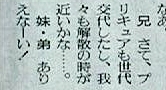 なあ。
兄　さて、プ
リキュアも世代
交代したし、我
々も解散の時が
近いかな……。
妹・弟　あり
えなーい！